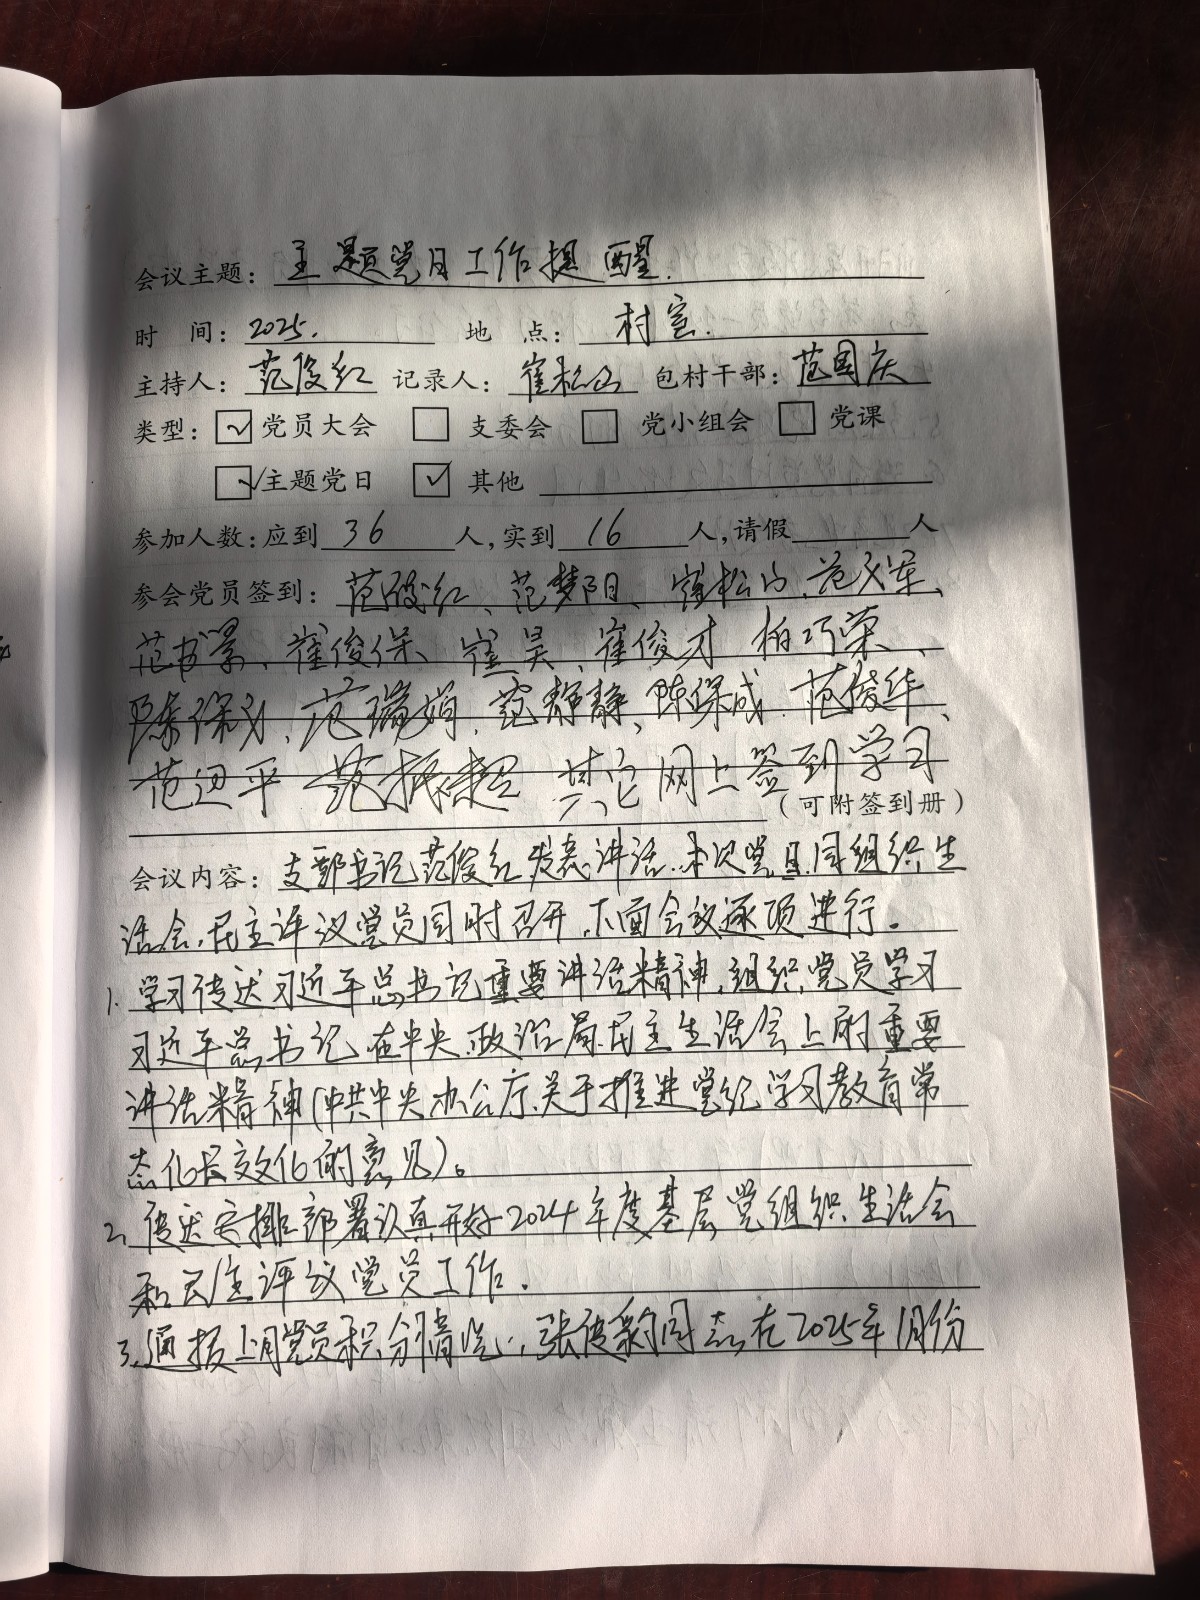 会议主题：主题党日工作提醒.
时 间：2025. 地 点：村室.
主持人：范俊红 记录人：崔松山 包村干部：范国庆
类型：☑党员大会 □ 支委会 □ 党小组会 □ 党课
☑主题党日 ☑ 其他
参加人数：应到36人，实到16人，请假 人
参会党员签到：范俊红、范梦阳、崔松山、范义军、
范书景、崔俊保、崔昊、崔俊才 柏巧荣、
陈保义、范瑞娟、范静静、陈保成、范俊华、
范迎平 范振超 其它网上签到学习
（可附签到册）
会议内容：支部书记范俊红发表讲话.本次党日同组织生
活会、民主评议党员同时召开.下面会议逐项进行。
1. 学习传达习近平总书记重要讲话精神,组织党员学习
习近平总书记在中央政治局民主生活会上的重要
讲话精神(中共中央办公厅关于推进党纪学习教育常
态化长效化的意见)。
2、传达安排部署认真开好2024年度基层党组织生活会
和民主评议党员工作.
3、通报上月党员积分情况,张俊 同志在2025年1月份